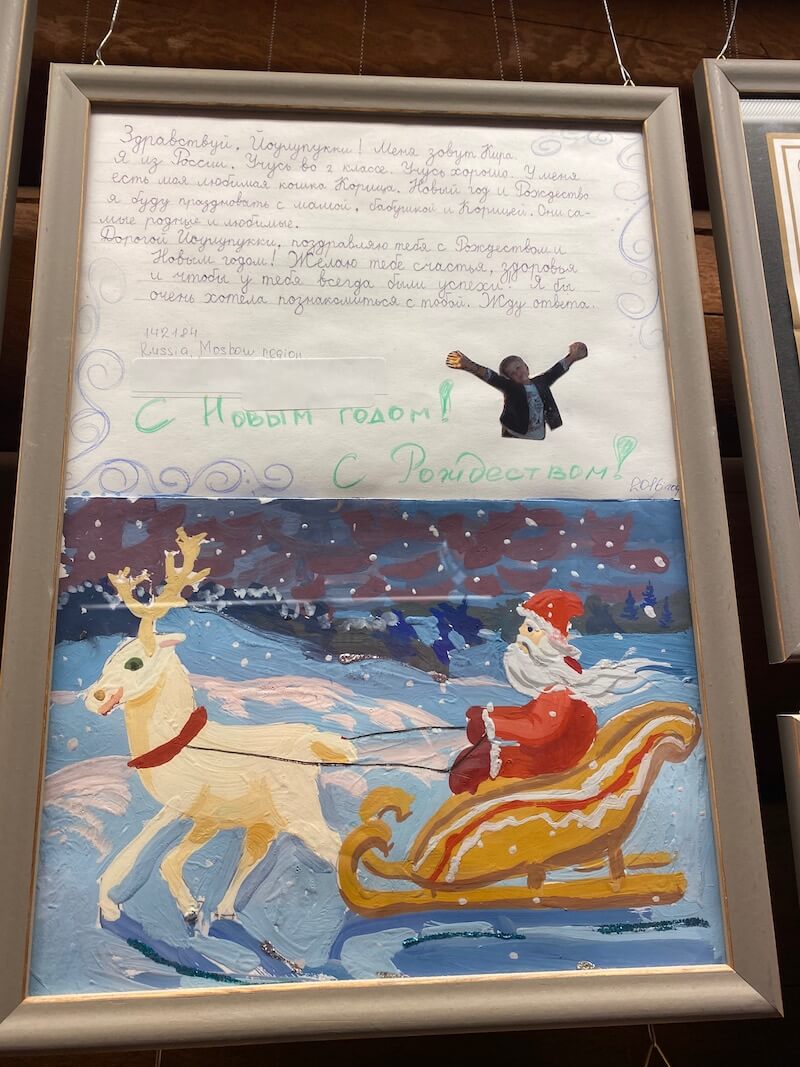 Здравствуй, Йоулупукки! Меня зовут Кира.
Я из России. Учусь во 2 классе. Учусь хорошо. У меня
есть моя любимая кошка Корица. Новый год и Рождество
я буду праздновать с мамой, бабушкой и Корицей. Они са-
мые родные и любимые.
Дорогой Йоулупукки, поздравляю тебя с Рождеством и
Новым годом! Желаю тебе счастья, здоровья
и чтобы у тебя всегда были успехи! Я бы
очень хотела познакомиться с тобой. Жду ответа.
142184
Russia, Moscow region
С Новым годом!
С Рождеством!
2016 год